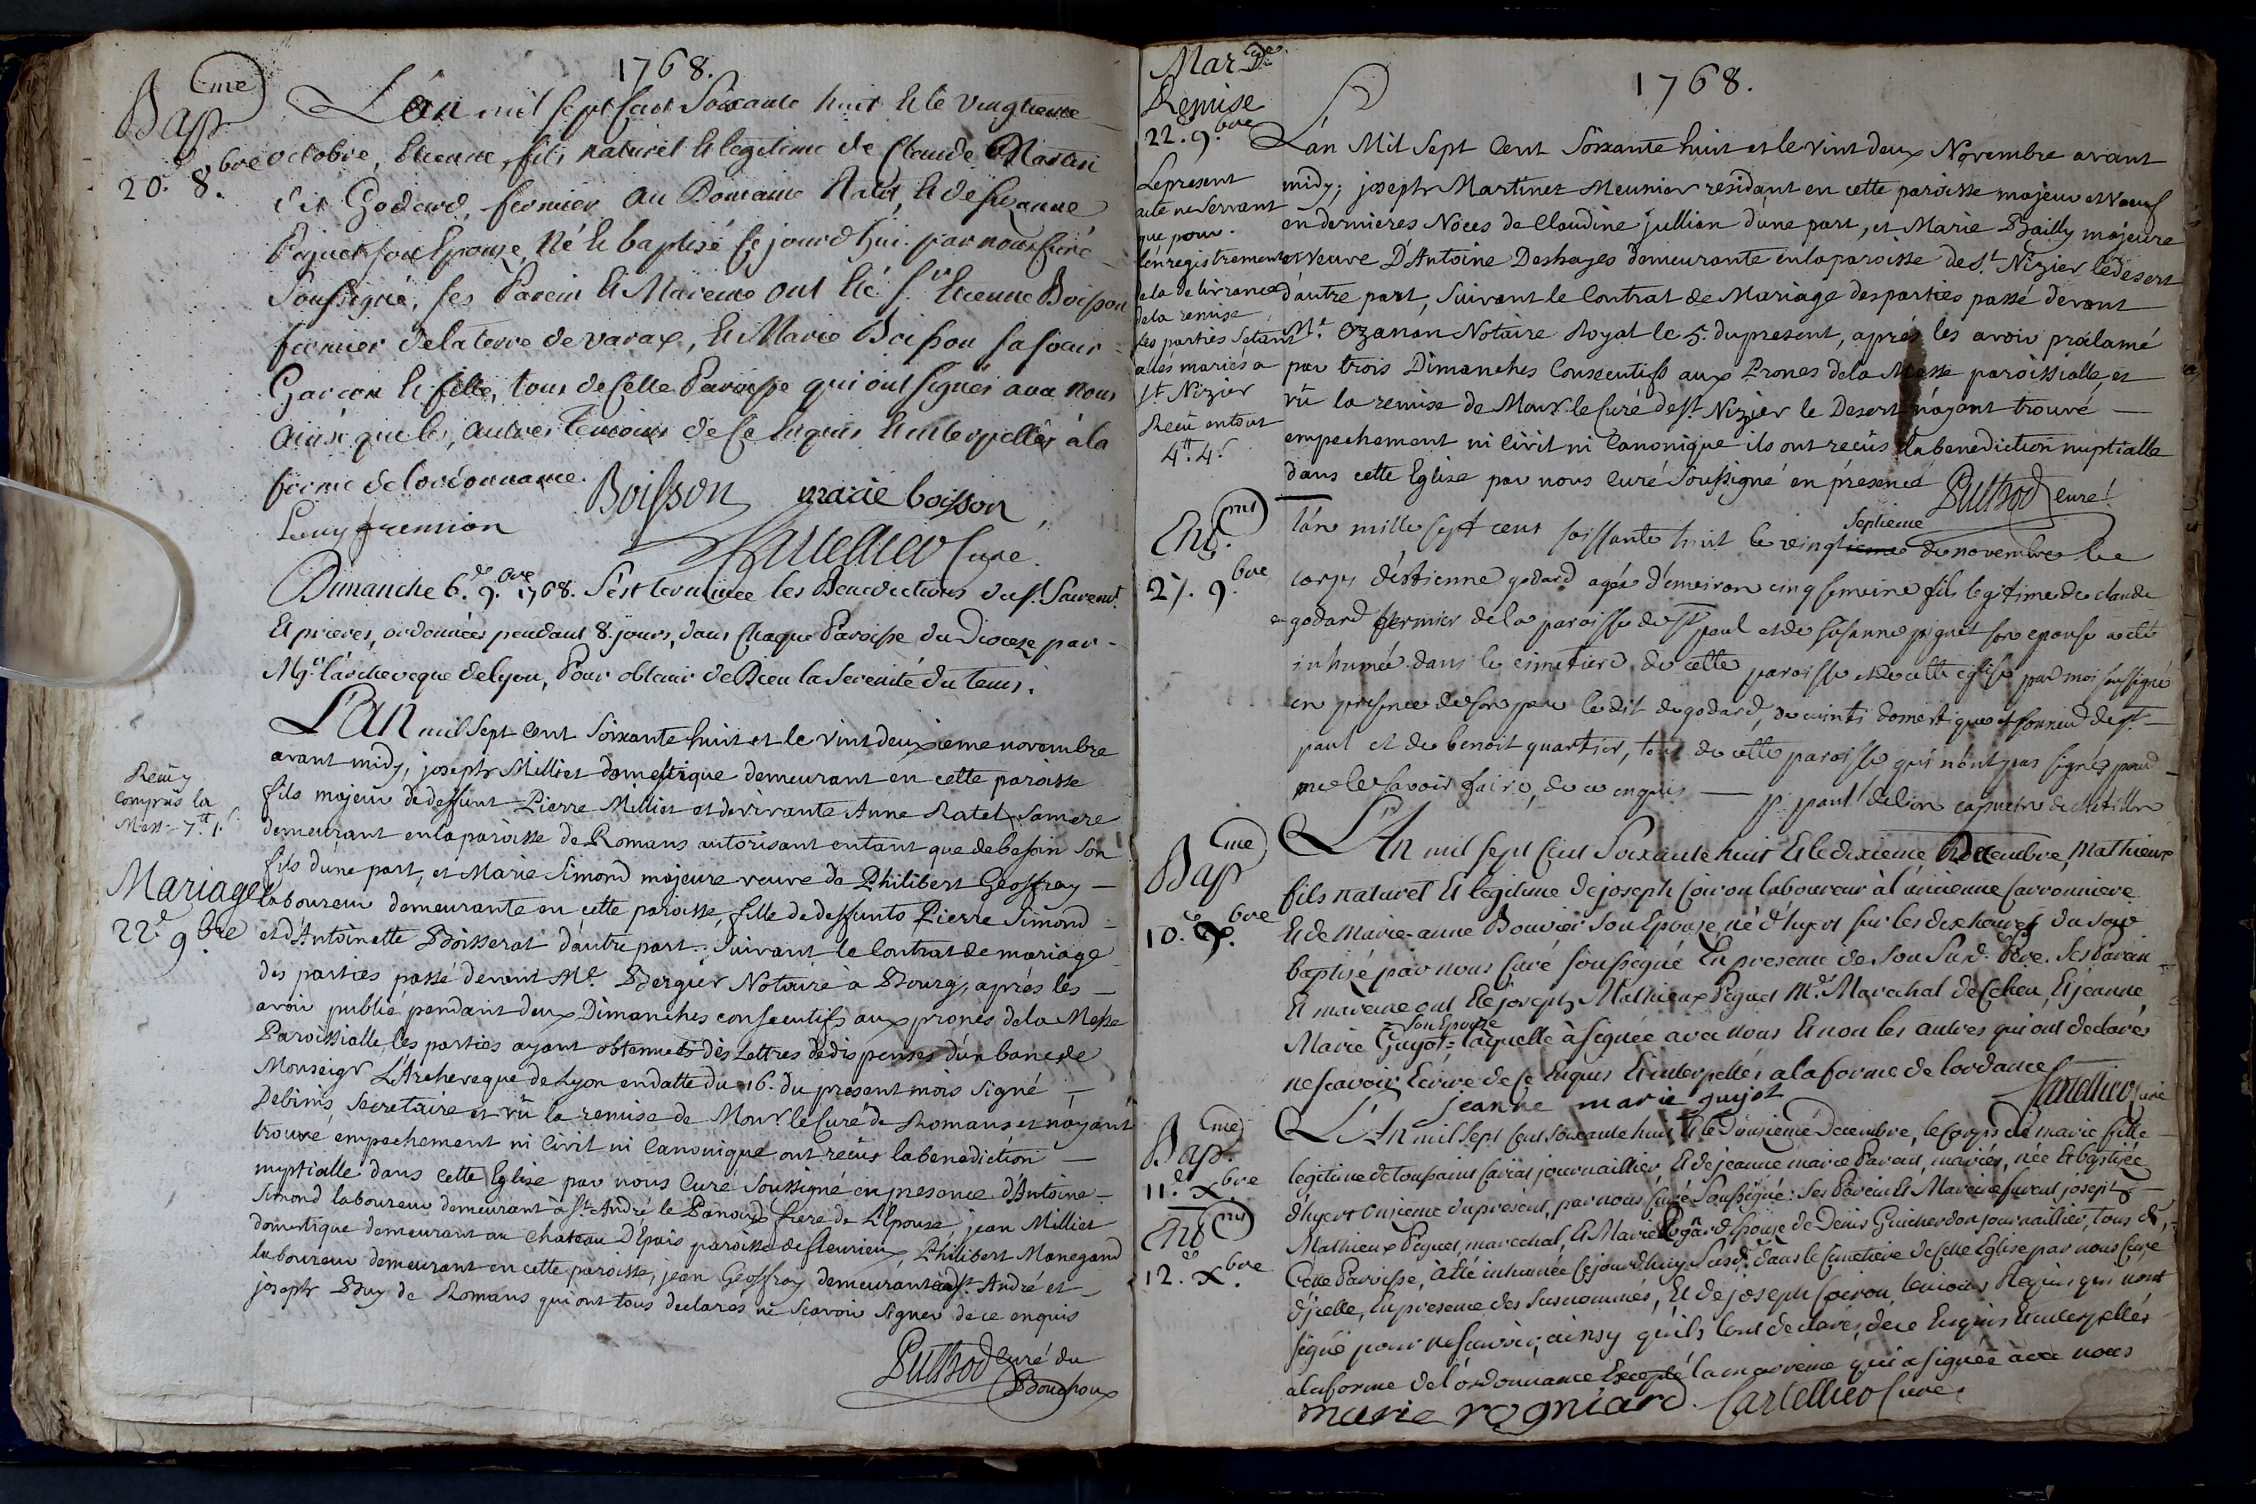 1768.
Bap^me
20.^e 8.^bre
L'an mil sept Cent Soixante huit & le vingtieme
octobre, Etienne, fils naturel & legitime de Claude Martin
dit Godard, fermier au Domaine & de Susanne
Piquet son Epouse, Né & baptisé Ce jourd'hui par nous Curé
Soussigné, ses Parein & Mareine ont été S.^r Etienne Boisson
fermier de la terre de varax, & Marie Boisson sa soeur
Garçon & fille, tous de Cette Paroisse qui ont signés avec nous
ainsi que les autres Temoins de Ce Enquis & interpellés à la
forme de l'ordonnance. Boisson marie boisson
Cartellier Curé.
Dimanche 6.^e 9.^bre 1768. S'est terminée les Benedictions du S.^t Sacrem.^t
Et prieres, ordonnées pendant 8. jours, dans Chaque Paroisse du Dioceze par
Mg.^r l'archeveque de Lyon, Pour obtenir de Dieu la Serenité du tems.
Reçu y
Compris la
Mess. 7.^# 1.^s
Mariage
22.^e 9.^bre
L'AN mil Sept Cent Soixante huit et le vint deuxieme novembre
avant midy, joseph Milliet domestique demeurant en cette paroisse
fils majeur de deffunt Pierre Milliet et de vivante Anne Ratel sa mere
demeurant en la paroisse de Romans autorisant en tant que de besoin son
fils d'une part, et Marie Simond majeure veuve de Philibert Geoffray
laboureur demeurante en cette paroisse, fille de deffunts Pierre Simond
et d'Antoinette Boisserat d'autre part; Suivant le Contrat de mariage
des parties passé devant M.^e Bergier Notaire à Bourg, aprés les
avoir publié pendant deux Dimanches consecutifs aux prones de la Messe
Paroissialle, les parties ayant obtenues des Lettres de dispenses d'un banc de
Monseig.^r L'Archeveque de Lyon en datte du 16. du present mois Signé
Debinis, Secretaire et vû la remise de Mons.^r le Curé de Romans et n'ayant
trouvé empechement ni Civil ni Canonique ont reçus la benediction
nuptialle dans cette Eglise par nous Curé Soussigné en presence d'Antoine
Simond laboureur demeurant à S.^t André le Panoux frere de L'Epouse, jean Milliet
domestique demeurant au Chateau D'Epais paroisse de fleurieux, Philibert Manegand
laboureur demeurant en cette paroisse, jean Geoffray demeurant à S.^t André et
joseph Buy de Romans qui ont tous declarés ne Scavoir Signer de ce enquis
Puthod Curé du
Bouchoux
1768.
Mar.^ge D.^e
Remise
22.^e 9.^bre
Le present
acte ne servant
que pour
l'enregistrement
de la delivrance
de la remise
les parties s'etant
allés mariés a
S.^t Nizier
Reçu en tout
4.^# 4.^s
L'an Mil Sept Cent Soixante huit et le vint deux Novembre avant
midy; joseph Martinet Meunier residant en cette paroisse majeur et veuf
en dernieres Noces de Claudine jullian d'une part, et Marie Bailly majeure
et veuve D'Antoine Deshayes demeurante en la paroisse de S.^t Nizier le Desert
d'autre part, Suivant le Contrat de Mariage des parties passé devant
M.^e Ozanan Notaire Royal le 5. du present, aprés les avoir proclamé
par trois Dimanches Consecutifs aux Prones de la Messe paroissialle, et
vû la remise de Mons.^r le Curé de S.^t Nizier le Desert n'ayant trouvé
empechement ni Civil ni Canonique ils ont reçus la benediction nuptialle
dans cette Eglise par nous Curé Soussigné en présence
Puthod curé
Ent.^mt
27. 9.^bre
l'an mille sept cent soissante huit le vingt septieme de novembre le
corps d'estienne godard agée d'environ cinq semaine fils legitime de claude
godard fermier de la paroisse de S.^t paul et de susanne piquet son epouse a été
inhumée dans le cimetiere de cette paroisse et de cette eglise par moi soussigné
en presence de son pere le dit de godard, domestique de S.^t
paul et de benoit quartier, tous de cette paroisse qui n'ont pas signés pour
ne le savoir faire, de ce enquis p. paul de lion capucin de chatillon
Bap^me
10.^e X.^bre
L'An mil sept Cent Soixante huit & le dixieme Decembre, Mathieux
fils naturel & légitime de joseph Coiron laboureur à l'ancienne Carronniere
& de Marie-anne Bouvier Son Epouse, né d'hyer sur les dix heures du soir
baptisé par nous Curé soussigné En presence de son Susd. Pere. Ses Parain
& mareine ont été joseph Mathieux Piquet M.^e Marechal de Ce lieu, & jeanne
Marie Guyot son Epouse laquelle à signée avec nous & non les autres qui ont declarés
ne scavoir Ecrire de Ce Enquis & interpellés a la forme de l'ordance
jeanne marie guijot Cartellier Curé
Bap^me
11.^e X.^bre
Ent.^mt
12.^e X.^bre
L'An mil sept Cent Soixante huit & le Douzieme Decembre, le Corps de marie fille
legitime de toussaint journaillier & de jeanne marie Parant, mariés, née & baptisée
d'hyer onzieme du présent, par nous Curé Soussigné: Ses Parein & Mareine furent joseph
Mathieux Piquet, marechal, & Marie Rogniard Epouse de Denis Guicherdon journaillier, tous de
Cette Paroisse, à été inhumée Ce jourd'huy Susd. dans le Cimetiere de Cette Eglise par nous Curé
d'icelle, En presence des Susnommés, & de joseph Coiron temoins Requis qui n'ont
signé pour ne scavoir, ainsy qu'ils l'ont declarés, de Ce Enquis & interpellés
a la forme de l'ordonnance Excepté la marreine qui a signée avec nous
marie rogniard. Cartellier Curé.